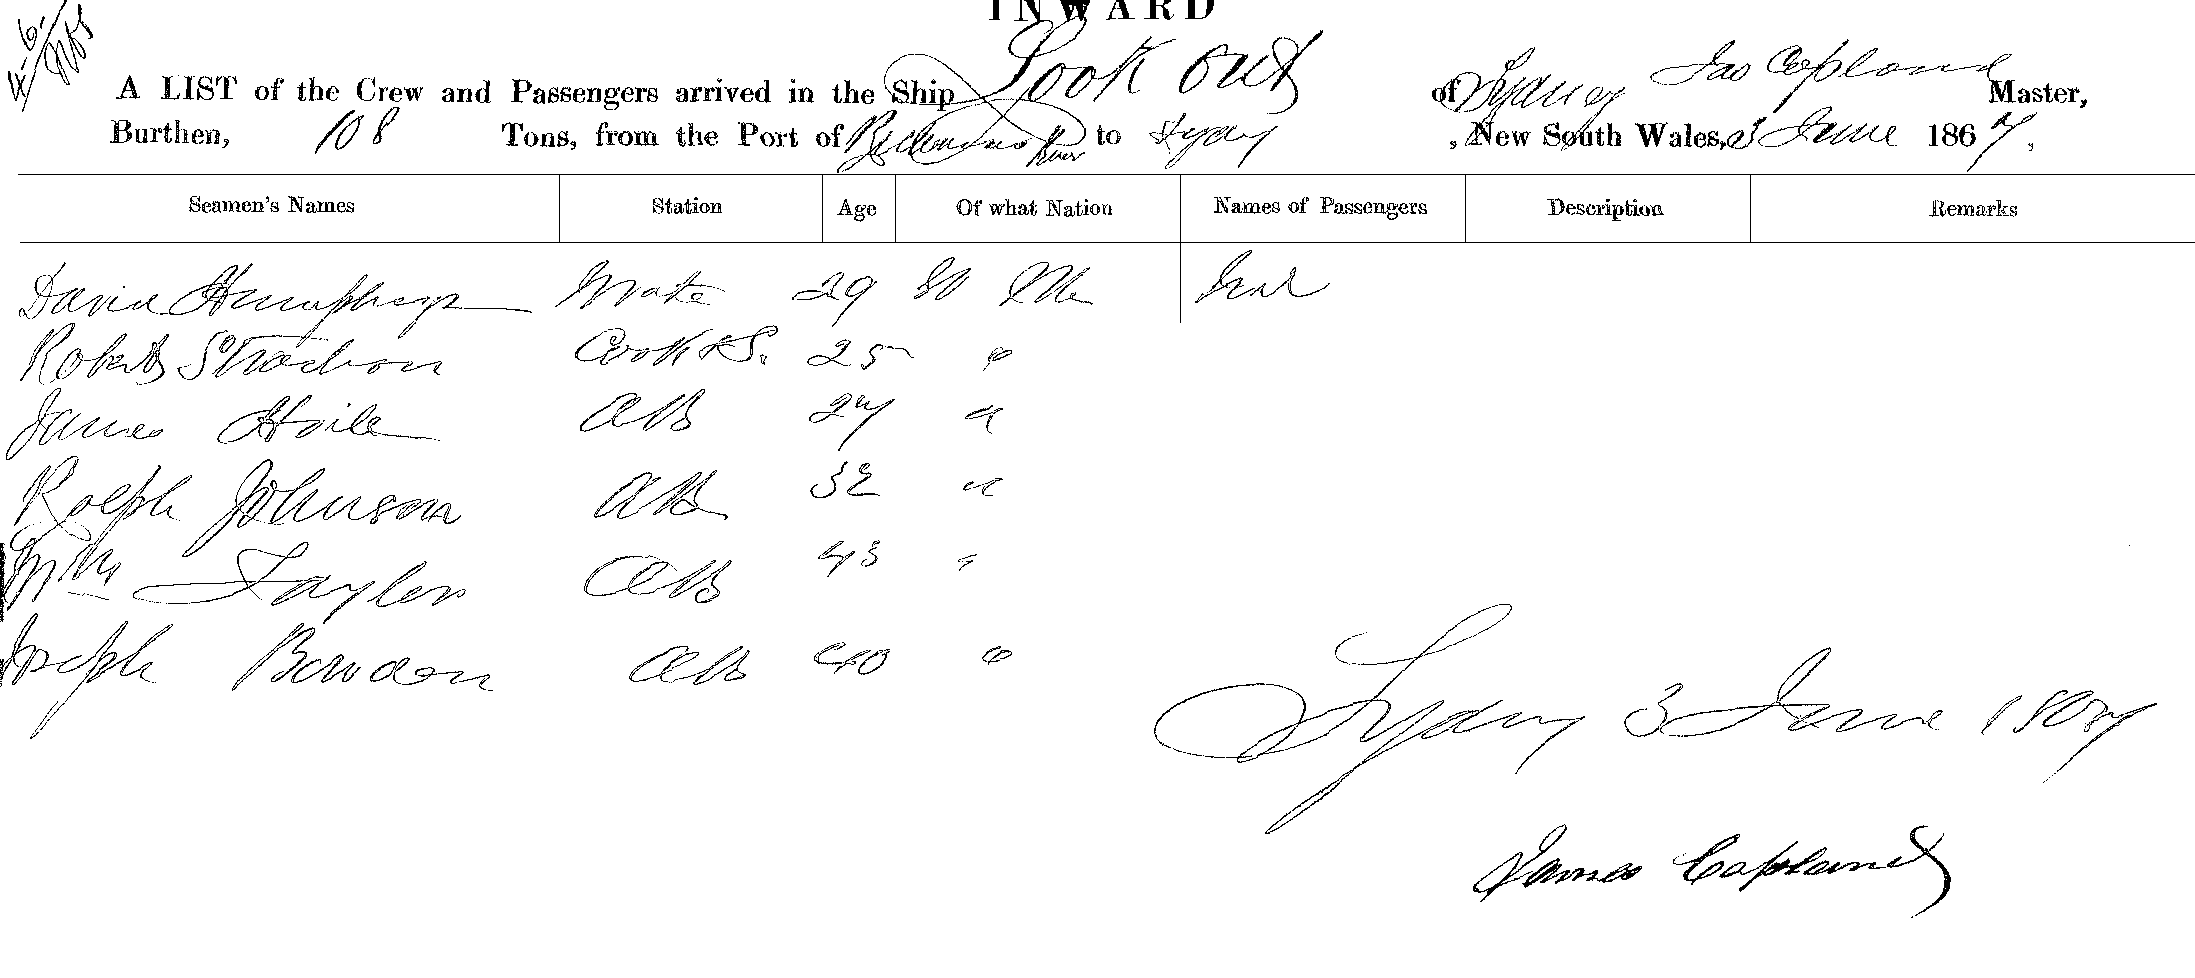 INWARD
A LIST of the Crew and Passengers arrived in the Ship Look Out of Sydney Jas Copland Master,
Burthen, 108 Tons, from the Port of Richmond River to Sydy , New South Wales, 3 June 1867,
Seamen's Names Station Age Of what Nation Names of Passengers Description Remarks
David Humphreys Mate 29
Robert Strachon Cook & S. 25 "
James Hoile AB 27 "
Ralph Johnson AB 32 "
Wm Taylor AB 43 "
Joseph Bowden AB 40 "
Sydny 3 June 1867
James Copland